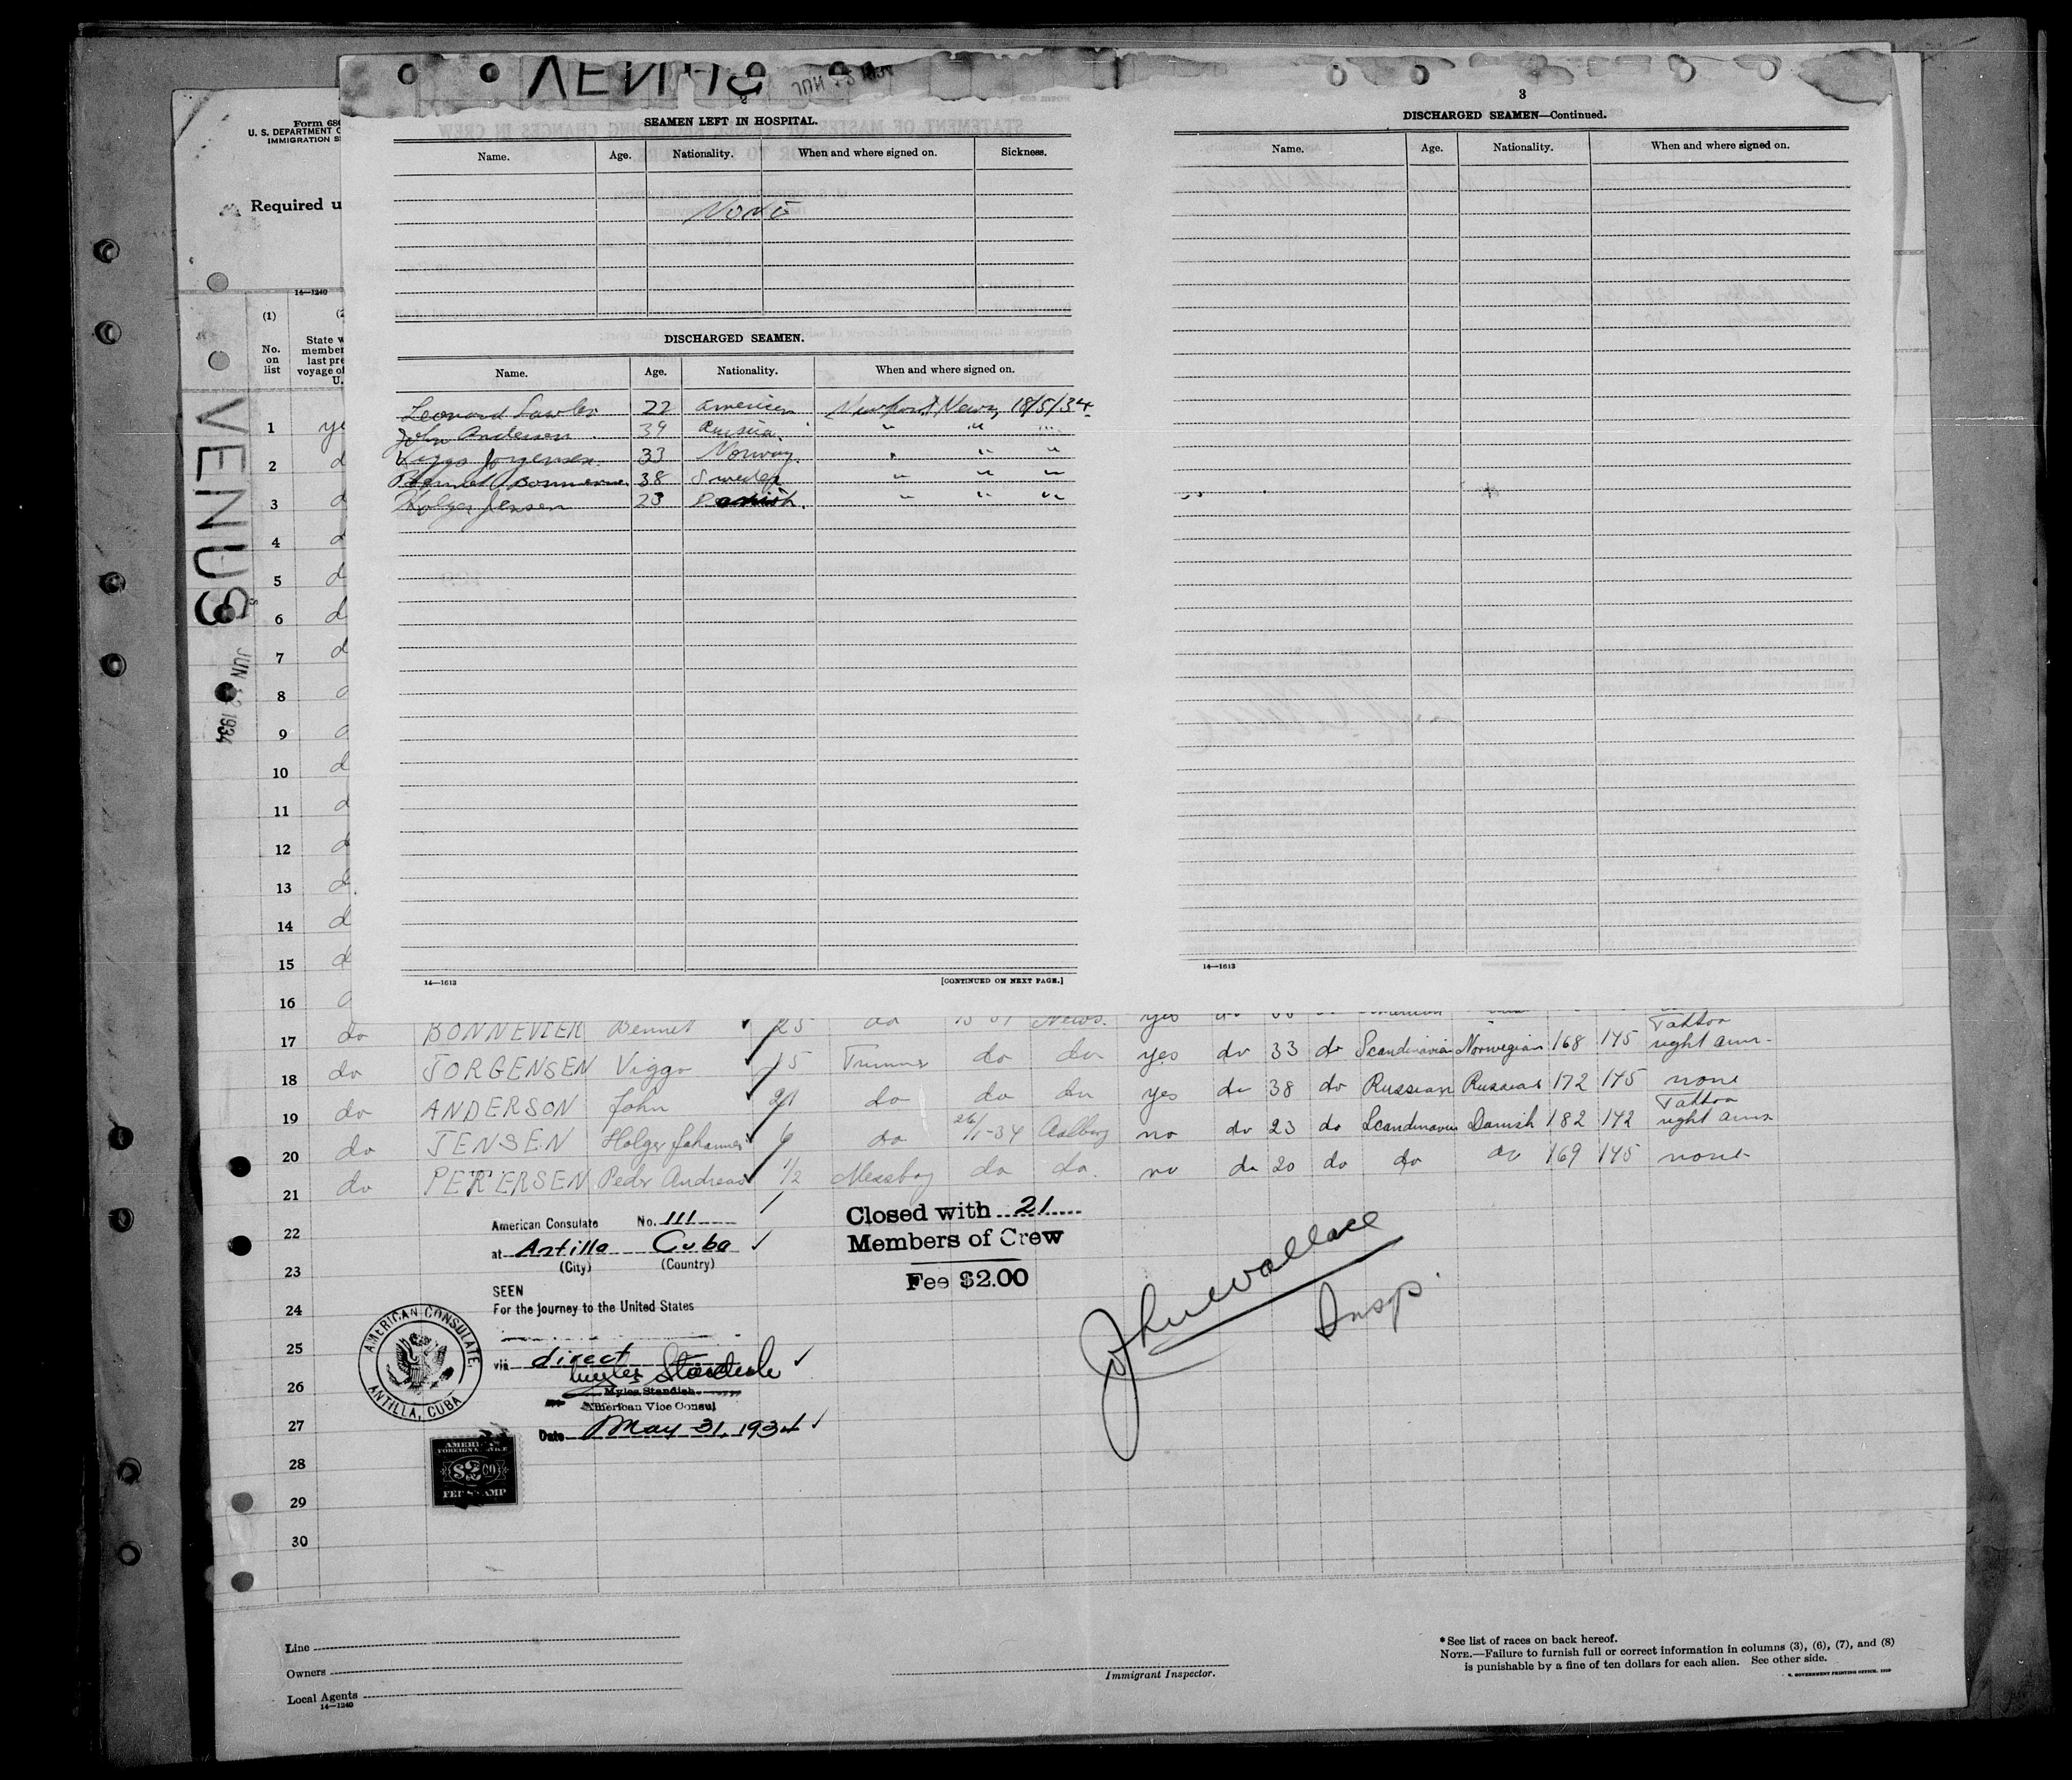 VENUS
3
SEAMEN LEFT IN HOSPITAL.
Name. Age. Nationality. When and where signed on. Sickness.
None
DISCHARGED SEAMEN.
Name. Age. Nationality. When and where signed on.
Leonard Lawler 22 American Newport News 18/5/34
John Andersen 39 Russia. " " "
Viggo Jorgensen 33 Norway. " " "
Bennet Bonnevier 38 Sweden " " "
Holger Jensen 23 Danish. " " "
14—1613 [CONTINUED ON NEXT PAGE.]
DISCHARGED SEAMEN—Continued.
Name. Age. Nationality. When and where signed on.
14—1613
Form 68
U. S. DEPARTMENT O
IMMIGRATION S
Required u
14—1240
(1) (2
No. on list
State w
member
last pre
voyage of
U.
VENUS
JUN 12 1934
1 ye
2 d
3 d
4 d
5 d
6 d
7 d
8
9
10 d
11 d
12 d
13 d
14 d
15 d
16
17 do BONNEVIER Bennet 25 do News. yes
18 do JORGENSEN Viggo 15 Trimmer do do yes do 33 do Scandinavian Norwegian 168 145 Tattoo right arm
19 do ANDERSON John 21 do do do yes do 38 do Russian Russian 172 145 none
20 do JENSEN Holger Johannes 6 do 26/1-34 Aalborg no do 23 do Scandinavian Danish 182 142 Tattoo right arm
21 do PETERSEN Peder Andreas 1/2 Messboy do do. no do 20 do do do 169 145 none
22
23
24
25
26
27
28
29
30
American Consulate No. 111
at Antilla Cuba
(City) (Country)
SEEN
For the journey to the United States
via direct
Myles Standish
Myles Standish
American Vice Consul
Date May 31, 1934
AMERICAN CONSULATE,
ANTILLA, CUBA
AMERI
FOREIGN SERVICE
$2 00
FEE STAMP
Closed with 21
Members of Crew
Fee $2.00
John Wallace
Insp.
Line
Owners
Local Agents
14—1240
Immigrant Inspector.
* See list of races on back hereof.
NOTE.—Failure to furnish full or correct information in columns (3), (6), (7), and (8)
is punishable by a fine of ten dollars for each alien. See other side.
U. S. GOVERNMENT PRINTING OFFICE